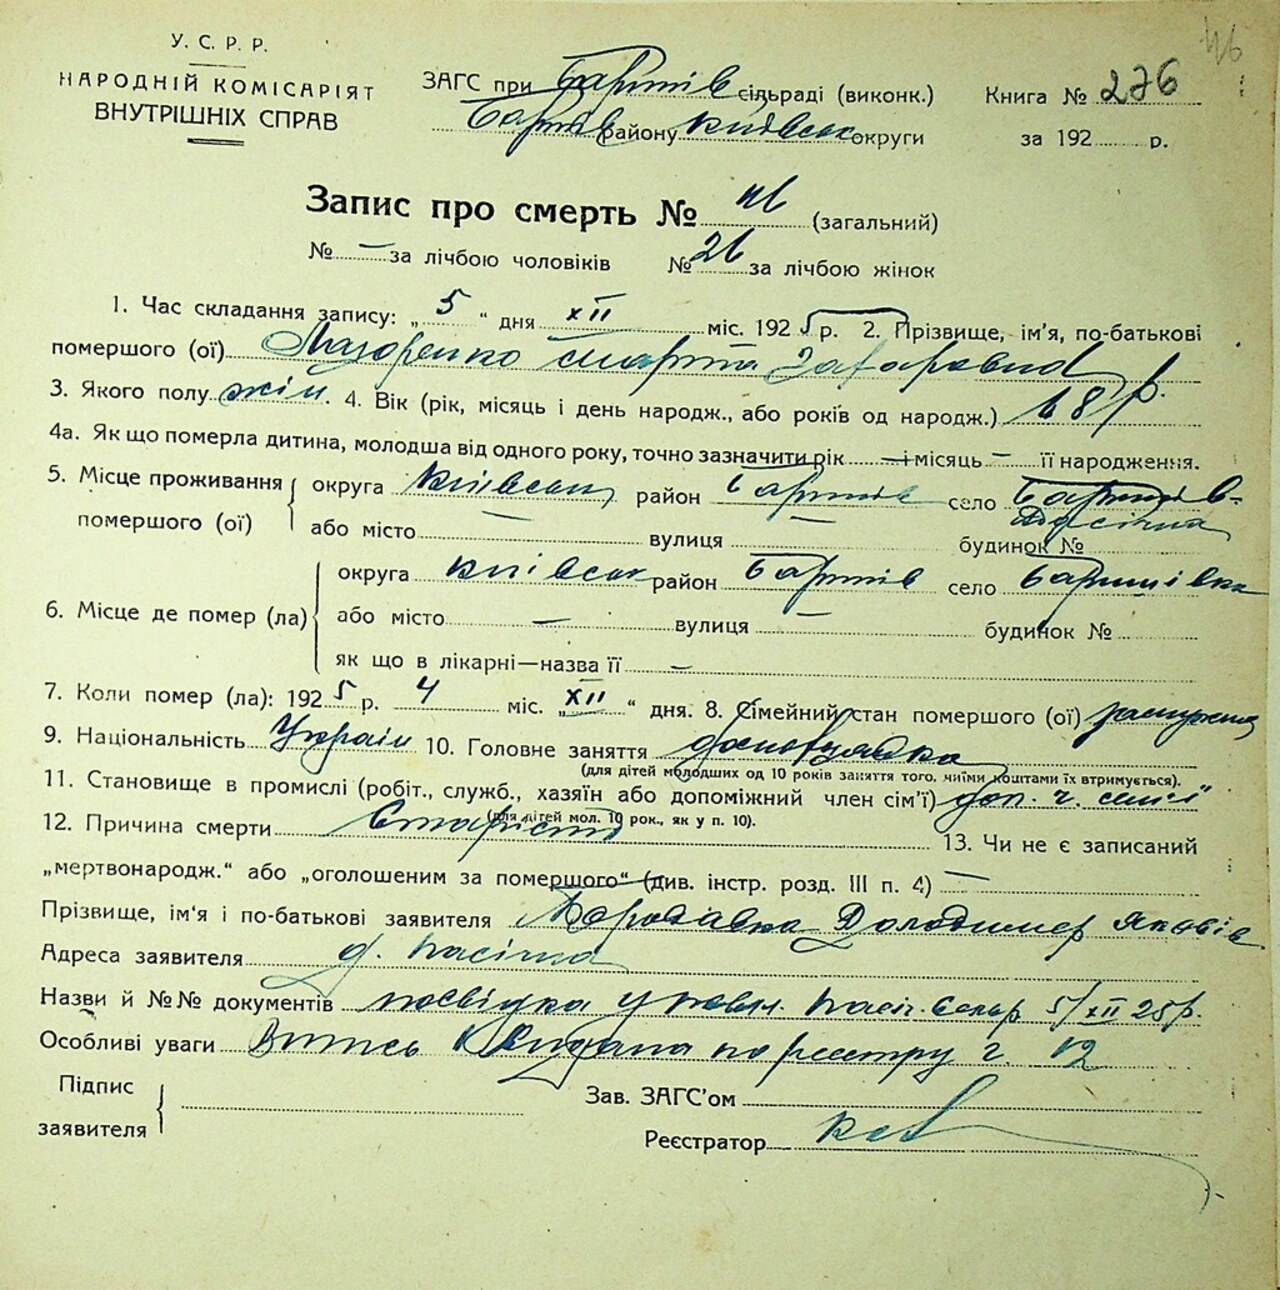 У. С. Р. Р.
НАРОДНІЙ КОМІСАРІЯТ
ВНУТРІШНІХ СПРАВ
ЗАГС при Баришів сільраді (виконк.)
Баришів району Київськ округи
Книга № 276
за 192 р.
46
Запис про смерть № 46 (загальний)
№ — за лічбою чоловіків № 26 за лічбою жінок
1. Час складання запису: „ 5 “ дня XII міс. 192 5 р. 2. Прізвище, ім'я, по-батькові
помершого (ої) Назоренко Марта Захаровна
3. Якого полу жін. 4. Вік (рік, місяць і день народж., або років од народж.) 68 р.
4а. Як що померла дитина, молодша від одного року, точно зазначити рік — і місяць — її народження.
5. Місце проживання помершого (ої) округа Київськ район Баришів село Баришів-
Пасічна
або місто — вулиця — будинок №
6. Місце де помер (ла) округа Київськ район Баришів село Баришівка
або місто — вулиця — будинок №
як що в лікарні—назва її —
7. Коли помер (ла): 192 5 р. 4 міс. „ XII “ дня. 8. Сімейний стан помершого (ої) замужня
9. Національність Україн 10. Головне заняття
(для дітей молодших од 10 років заняття того, чиїми коштами їх втримується).
11. Становище в промислі (робіт., служб., хазяїн або допоміжний член сім'ї) доп. ч. семії
(для дітей мол. 10 рок., як у п. 10).
12. Причина смерти Старість 13. Чи не є записаний
„мертвонародж.“ або „оголошеним за помершого“ (див. інстр. розд. III п. 4) —
Прізвище, ім'я і по-батькові заявителя Бородавка Володимер Яковів
Адреса заявителя д. Пасічна
Назви й №№ документів посвідка уповн. Пасіч. Сельр 5/XII 25 р.
Особливі уваги Витись по реестру г. 12
Підпис
заявителя
Зав. ЗАГС'ом
Реєстратор